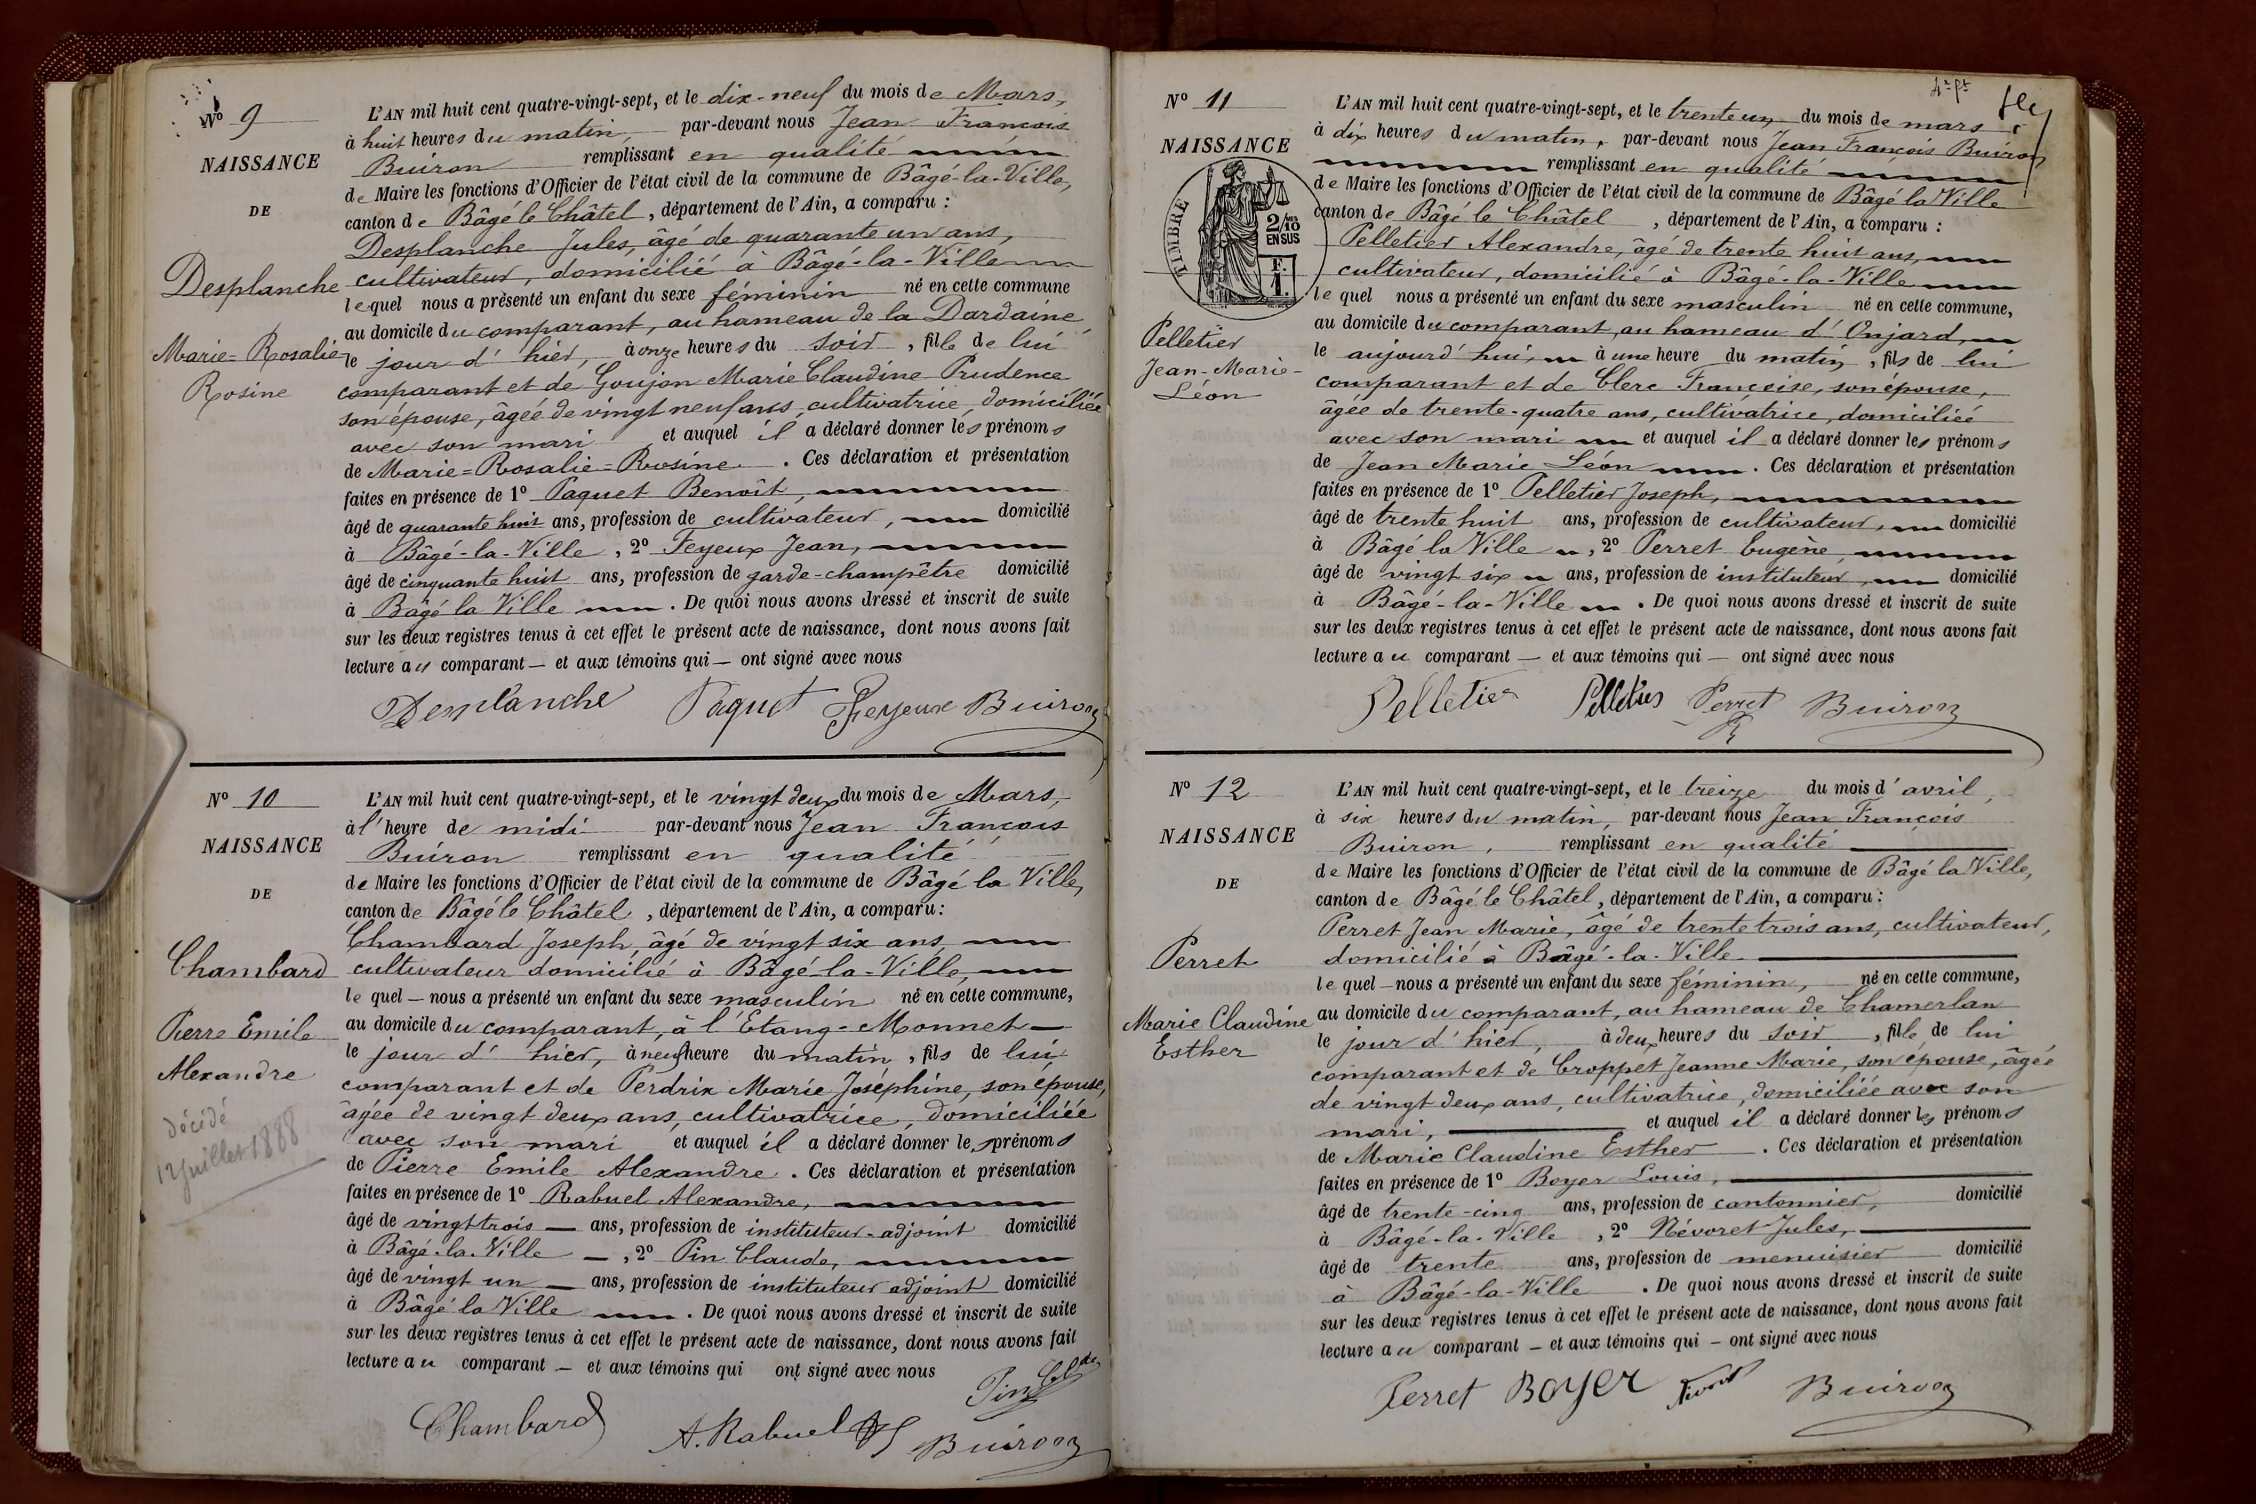 Nº 9
NAISSANCE
DE
Desplanche
Marie=Rosalie
Rosine
L'AN mil huit cent quatre-vingt-sept, et le dix-neuf du mois de Mars,
à huit heures du matin, par-devant nous Jean François
Buiron remplissant en qualité
de Maire les fonctions d'Officier de l'état civil de la commune de Bâgé-la-Ville,
canton de Bâgé le Châtel, département de l'Ain, a comparu :
Desplanche Jules, âgé de quarante un ans,
cultivateur, domicilié à Bâgé-la-Ville
lequel nous a présenté un enfant du sexe féminin né en cette commune
au domicile du comparant, au hameau de la Dardaine
le jour d'hier, à onze heures du soir, fille de lui
comparant et de Goujon Marie Claudine Prudence
son épouse, âgée de vingt neuf ans, cultivatrice, domiciliée
avec son mari et auquel il a déclaré donner les prénoms
de Marie=Rosalie=Rosine. Ces déclaration et présentation
faites en présence de 1º Paquet Benoît,
âgé de quarante huit ans, profession de cultivateur, domicilié
à Bâgé-la-Ville, 2º Feyeux Jean,
âgé de cinquante huit ans, profession de garde-champêtre domicilié
à Bâgé la Ville. De quoi nous avons dressé et inscrit de suite
sur les deux registres tenus à cet effet le présent acte de naissance, dont nous avons fait
lecture au comparant — et aux témoins qui — ont signé avec nous
Desplanche Paquet Feyeux Buiron
Nº 10
NAISSANCE
DE
Chambard
Pierre Emile
Alexandre
décédé
12 juillet 1888
L'AN mil huit cent quatre-vingt-sept, et le vingt deux du mois de Mars,
à l'heure de midi par-devant nous Jean François
Buiron remplissant en qualité
de Maire les fonctions d'Officier de l'état civil de la commune de Bâgé la Ville,
canton de Bâgé le Châtel, département de l'Ain, a comparu :
Chambard Joseph, âgé de vingt six ans
cultivateur domicilié à Bâgé-la-Ville,
le quel — nous a présenté un enfant du sexe masculin né en cette commune,
au domicile du comparant, à l'Etang-Monnet —
le jour d'hier, à neuf heure du matin, fils de lui
comparant et de Perdrix Marie Joséphine, son épouse,
âgée de vingt deux ans, cultivatrice, domiciliée
avec son mari et auquel il a déclaré donner les prénoms
de Pierre Emile Alexandre. Ces déclaration et présentation
faites en présence de 1º Rabuel Alexandre,
âgé de vingt trois — ans, profession de instituteur-adjoint domicilié
à Bâgé-la-Ville —, 2º Pin Claude,
âgé de vingt un — ans, profession de instituteur adjoint domicilié
à Bâgé la Ville. De quoi nous avons dressé et inscrit de suite
sur les deux registres tenus à cet effet le présent acte de naissance, dont nous avons fait
lecture au comparant — et aux témoins qui ont signé avec nous
Pin Cl.de
Chambard A. Rabuel Buiron
Nº 11
NAISSANCE
TIMBRE
2/10
EN SUS
F.
1.
Pelletier
Jean-Marie-
Léon
L'AN mil huit cent quatre-vingt-sept, et le trente un du mois de mars
à dix heures du matin, par-devant nous Jean François Buiron
remplissant en qualité
de Maire les fonctions d'Officier de l'état civil de la commune de Bâgé la Ville
canton de Bâgé le Châtel, département de l'Ain, a comparu :
Pelletier Alexandre, âgé de trente huit ans,
cultivateur, domicilié à Bâgé-la-Ville
le quel nous a présenté un enfant du sexe masculin né en cette commune,
au domicile du comparant, au hameau d'Onjard,
le aujourd'hui, à une heure du matin, fils de lui
comparant et de Clerc Françoise, son épouse,
âgée de trente-quatre ans, cultivatrice, domiciliée
avec son mari et auquel il a déclaré donner les prénoms
de Jean Marie Léon. Ces déclaration et présentation
faites en présence de 1º Pelletier Joseph,
âgé de trente huit ans, profession de cultivateur, domicilié
à Bâgé la Ville, 2º Perret Eugène,
âgé de vingt six ans, profession de instituteur, domicilié
à Bâgé-la-Ville. De quoi nous avons dressé et inscrit de suite
sur les deux registres tenus à cet effet le présent acte de naissance, dont nous avons fait
lecture au comparant — et aux témoins qui — ont signé avec nous
Pelletier Pelletier Perret Buiron
Nº 12
NAISSANCE
DE
Perret
Marie Claudine
Esther
L'AN mil huit cent quatre-vingt-sept, et le treize du mois d'avril,
à six heures du matin, par-devant nous Jean François
Buiron, remplissant en qualité
de Maire les fonctions d'Officier de l'état civil de la commune de Bâgé la Ville,
canton de Bâgé le Châtel, département de l'Ain, a comparu :
Perret Jean Marie, âgé de trente trois ans, cultivateur,
domicilié à Bâgé-la-Ville
le quel — nous a présenté un enfant du sexe féminin, né en cette commune,
au domicile du comparant, au hameau de Chamerlan
le jour d'hier, à deux heures du soir, fille de lui
comparant et de Croppet Jeanne Marie, son épouse, âgée
de vingt deux ans, cultivatrice, domiciliée avec son
mari, et auquel il a déclaré donner les prénoms
de Marie Claudine Esther. Ces déclaration et présentation
faites en présence de 1º Boyer Louis,
âgé de trente-cinq ans, profession de cantonnier, domicilié
à Bâgé-la-Ville, 2º Névoret Jules,
âgé de trente ans, profession de menuisier domicilié
à Bâgé-la-Ville. De quoi nous avons dressé et inscrit de suite
sur les deux registres tenus à cet effet le présent acte de naissance, dont nous avons fait
lecture au comparant — et aux témoins qui — ont signé avec nous
Perret BOYER Buiron